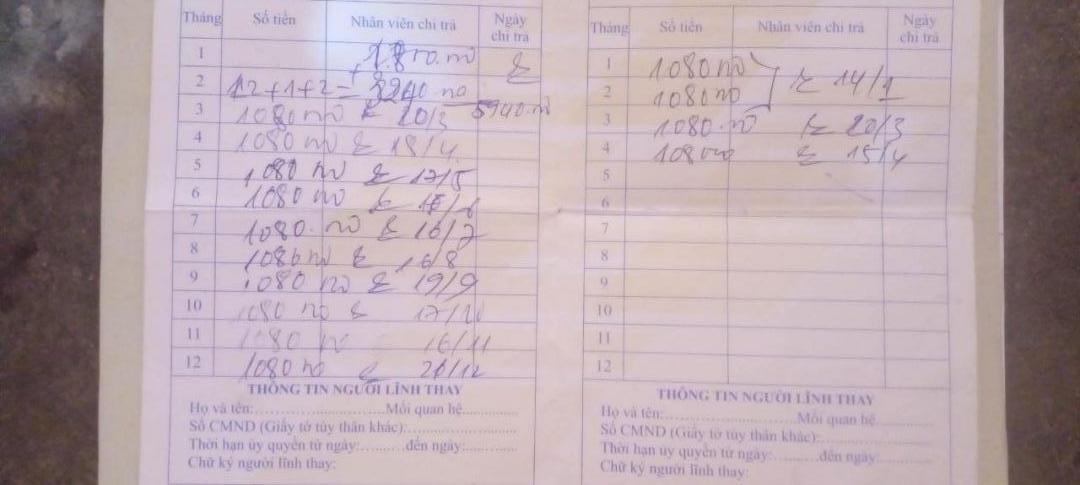 Tháng Số tiền Nhân viên chi trả Ngày chi trả
1 1.810.nđ
2 12+1+2= 3240 nđ
3 1080 nđ 20/3 5940.nđ
4 1080 nđ 18/4
5 1080 nđ 17/5
6 1080 nđ
7 1080. nđ 16/7
8 1080 nđ 16/8
9 1080 nđ 19/9
10 1080 nđ 17/10
11 1080 nđ 16/11
12 1080 nđ
THÔNG TIN NGƯỜI LĨNH THAY
Họ và tên:..................Mối quan hệ..............
Số CMND (Giấy tờ tùy thân khác):..............
Thời hạn ủy quyền từ ngày:.........đến ngày:..........
Chữ ký người lĩnh thay:
Tháng Số tiền Nhân viên chi trả Ngày chi trả
1 1080 nđ 14/1
2 1080 nđ
3 1080. nđ 20/3
4 1080 nđ 15/4
5
6
7
8
9
10
11
12
THÔNG TIN NGƯỜI LĨNH THAY
Họ và tên:..................Mối quan hệ..............
Số CMND (Giấy tờ tùy thân khác):..............
Thời hạn ủy quyền từ ngày:.........đến ngày:..........
Chữ ký người lĩnh thay: